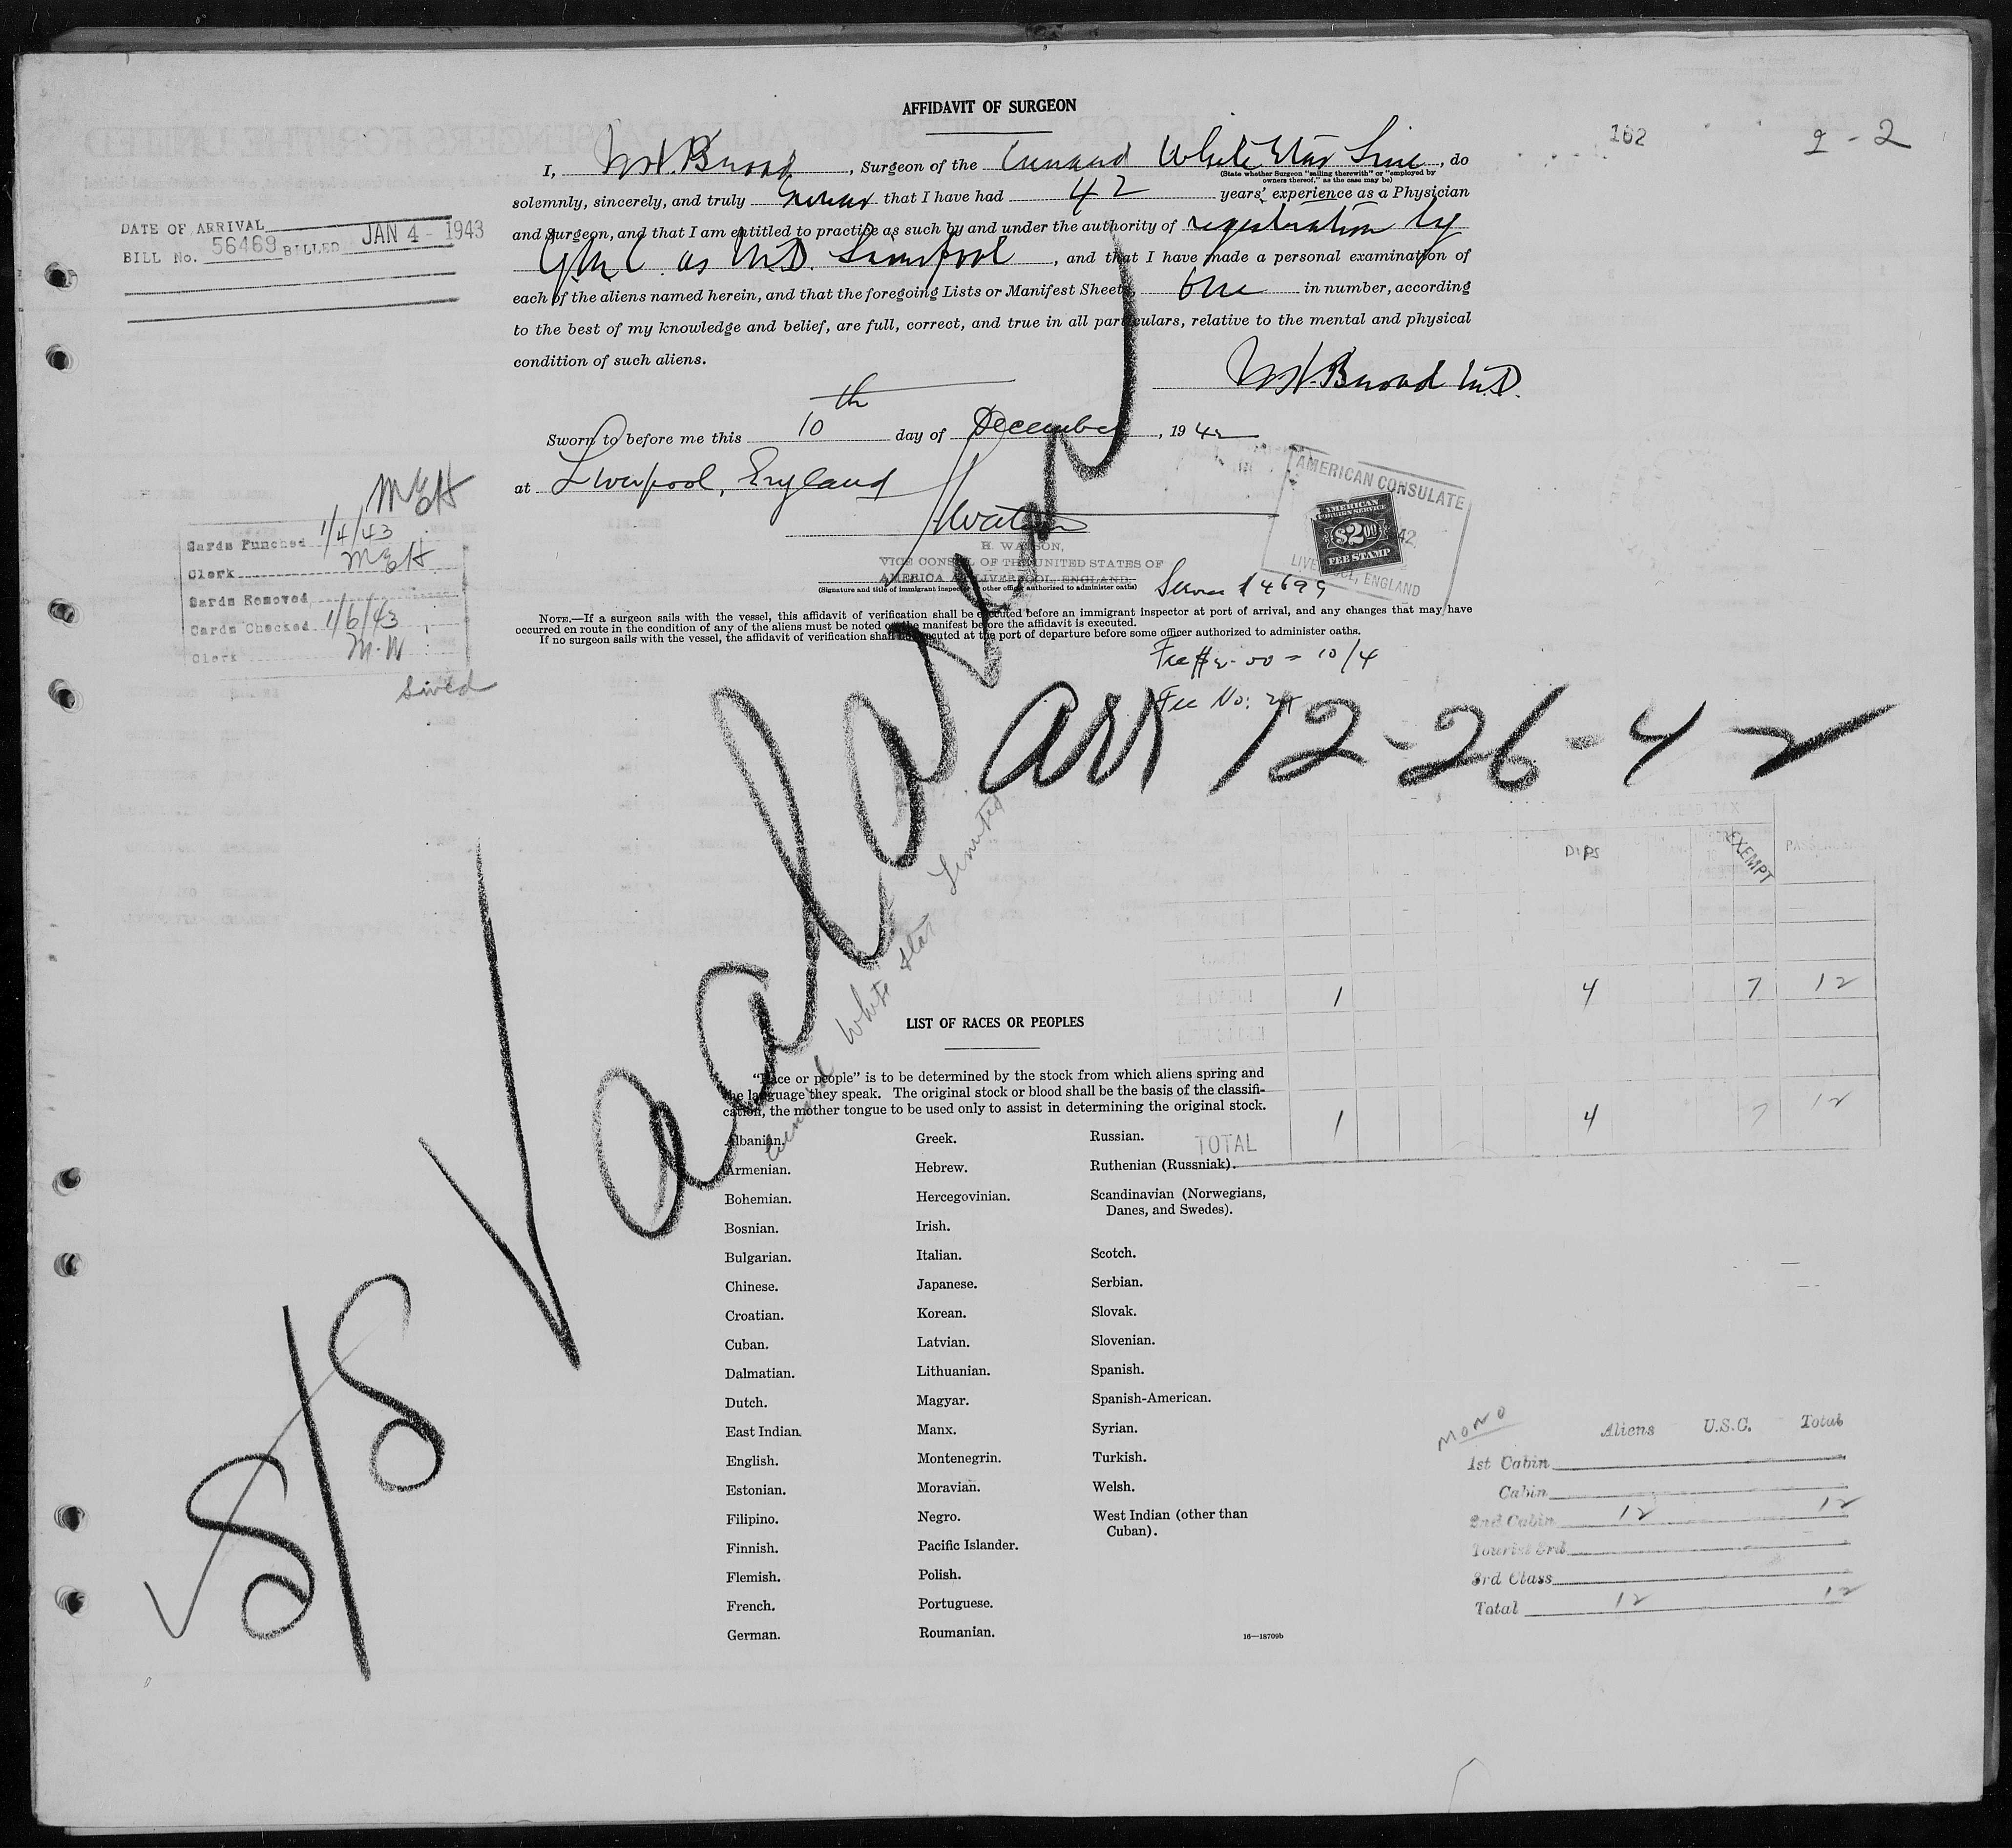 AFFIDAVIT OF SURGEON
162
2 - 2
I, W. Broad, Surgeon of the Cunard White Star Line, do
(State whether Surgeon "sailing therewith" or "employed by
owners thereof," as the case may be)
solemnly, sincerely, and truly swear that I have had 42 years' experience as a Physician
and Surgeon, and that I am entitled to practice as such by and under the authority of registration by
GMC. as M.D. Liverpool, and that I have made a personal examination of
each of the aliens named herein, and that the foregoing Lists or Manifest Sheets, One in number, according
to the best of my knowledge and belief, are full, correct, and true in all particulars, relative to the mental and physical
condition of such aliens.
Broad M.D.
DATE OF ARRIVAL
BILL No. 56469 BILLED JAN 4 - 1943
Sworn to before me this 10th day of December, 1942
at Liverpool, England
HWatson
H. WATSON,
VICE CONSUL OF THE UNITED STATES OF
AMERICA AT LIVERPOOL, ENGLAND.
(Signature and title of immigrant inspector or other officer authorized to administer oaths)
AMERICAN CONSULATE
AMERICAN
FOREIGN SERVICE
$2.00
FEE STAMP
42
LIVERPOOL, ENGLAND
14699
MEH
Cards Punched 1/4/43
Clerk MEH
Cards Removed
Cards Checked 1/6/43
Clerk M.W
NOTE.—If a surgeon sails with the vessel, this affidavit of verification shall be executed before an immigrant inspector at port of arrival, and any changes that may have
occurred en route in the condition of any of the aliens must be noted on the manifest before the affidavit is executed.
If no surgeon sails with the vessel, the affidavit of verification shall be executed at the port of departure before some officer authorized to administer oaths.
Fee $2.00 = 10/4
Fee No:
arr 12-26-42
S/S Vaalaren
Cunard White Star Limited
DIPS
EXEMPT
PASSENGERS
1 4 7 12
TOTAL 1 4 7 12
LIST OF RACES OR PEOPLES
"Race or people" is to be determined by the stock from which aliens spring and
the language they speak. The original stock or blood shall be the basis of the classifi-
cation, the mother tongue to be used only to assist in determining the original stock.
Albanian.
Armenian.
Bohemian.
Bosnian.
Bulgarian.
Chinese.
Croatian.
Cuban.
Dalmatian.
Dutch.
East Indian.
English.
Estonian.
Filipino.
Finnish.
Flemish.
French.
German.
Greek.
Hebrew.
Hercegovinian.
Irish.
Italian.
Japanese.
Korean.
Latvian.
Lithuanian.
Magyar.
Manx.
Montenegrin.
Moravian.
Negro.
Pacific Islander.
Polish.
Portuguese.
Roumanian.
Russian.
Ruthenian (Russniak).
Scandinavian (Norwegians,
Danes, and Swedes).
Scotch.
Serbian.
Slovak.
Slovenian.
Spanish.
Spanish-American.
Syrian.
Turkish.
Welsh.
West Indian (other than
Cuban).
16—18709b
MONO
Aliens U.S.C. Total
1st Cabin
Cabin
2nd Cabin 12 12
Tourist 3rd
3rd Class
Total 12 12